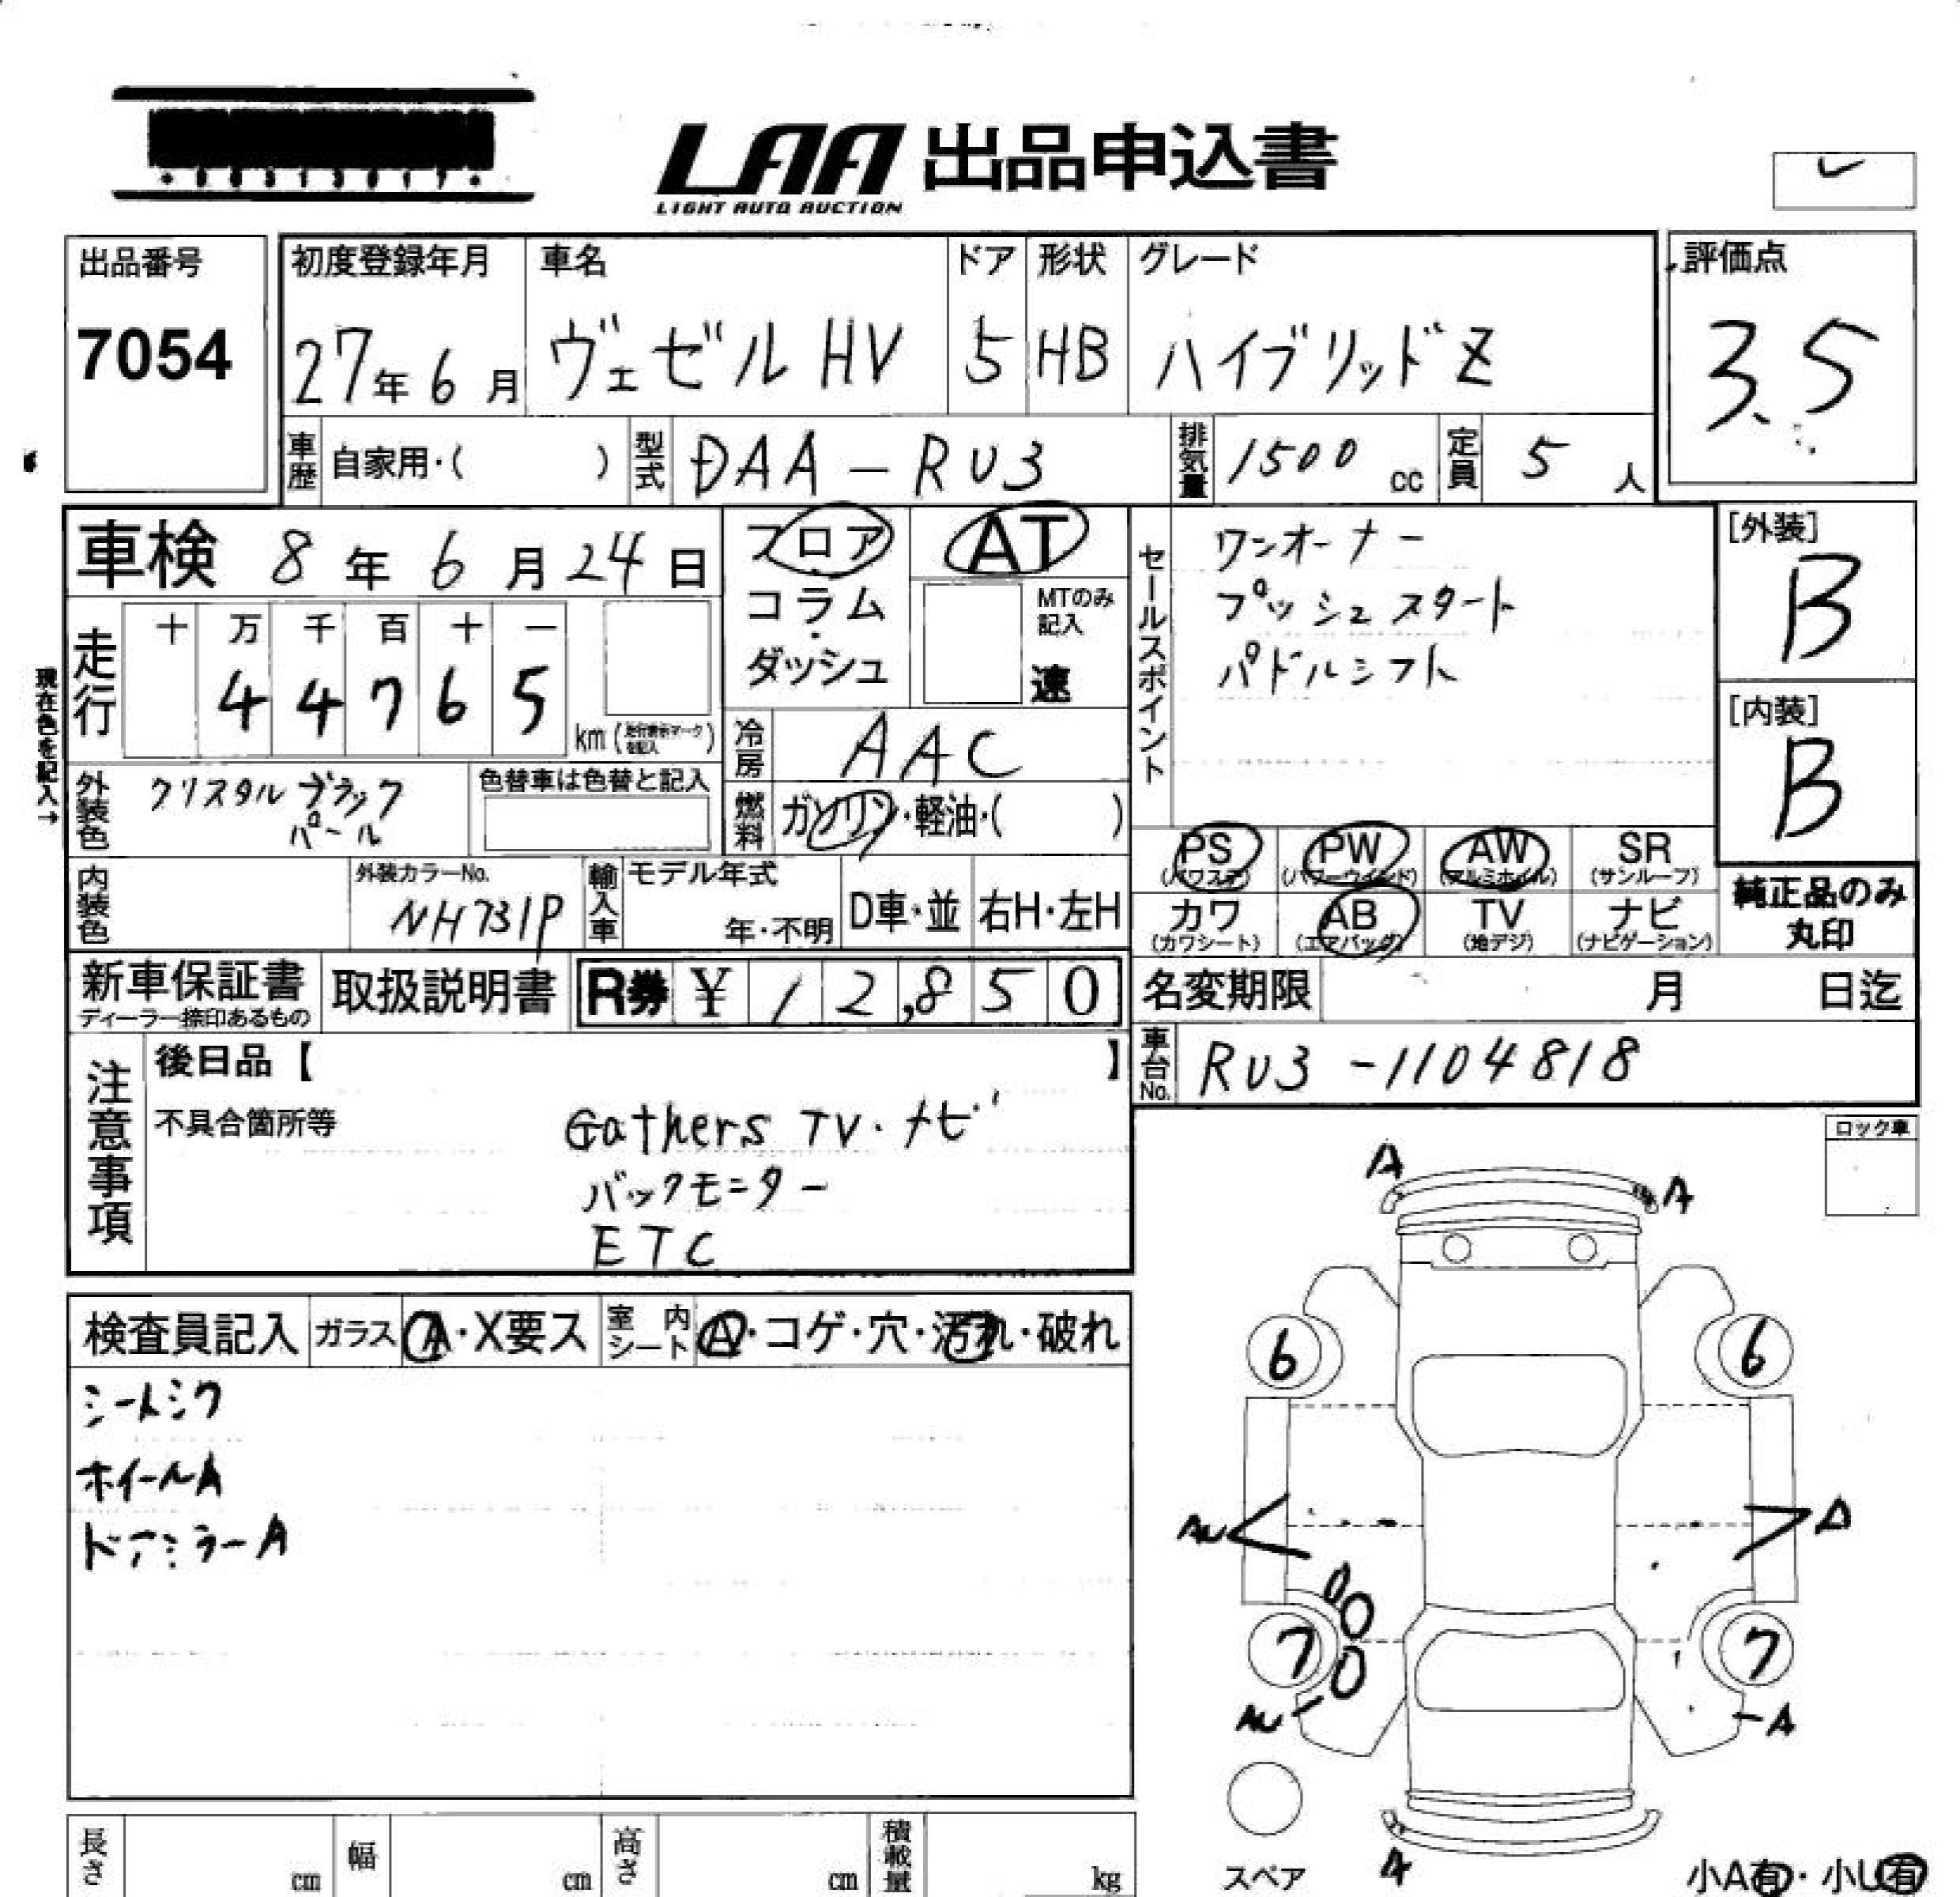 LAA 出品申込書
LIGHT AUTO AUCTION
出品番号
7054
初度登録年月
27年6月
車名
ヴェゼル HV
ドア
5
形状
HB
グレード
ハイブリッド Z
評価点
3.5
車歴 自家用・( )
型式 DAA-RU3
排気量 1500 cc
定員 5 人
車検 8年6月24日
フロア・コラム・ダッシュ
AT
MTのみ記入
速
セールスポイント
ワンオーナー
プッシュスタート
パドルシフト
[外装]
B
[内装]
B
現在色を記入→
走行
十 万 千 百 十 一
4 4 7 6 5 km
冷房 AAC
外装色 クリスタルブラックパール
色替車は色替と記入
燃料 ガソリン・軽油・( )
PS (パワステ)
PW (パワーウインド)
AW (アルミホイル)
SR (サンルーフ)
カワ (カワシート)
AB (エアバッグ)
TV (地デジ)
ナビ (ナビゲーション)
純正品のみ丸印
内装色
外装カラーNo.
NH731P
輸入車
モデル年式
年・不明
D車・並
右H・左H
新車保証書
ディーラー捺印あるもの
取扱説明書
R券 ¥ 12,850
名変期限 月 日迄
車台No. RU3-1104818
注意事項
後日品【 】
不具合箇所等
Gathers TV・ナビ
バックモニター
ETC
ロック車
検査員記入
ガラス A・X要ス
室内シート A・コゲ・穴・汚れ・破れ
シートシワ
ホイールA
ドアミラーA
A
A
6
6
AU
A
7
7
AU
A
A
スペア
小A有・小U有
長さ cm
幅 cm
高さ cm
積載量 kg